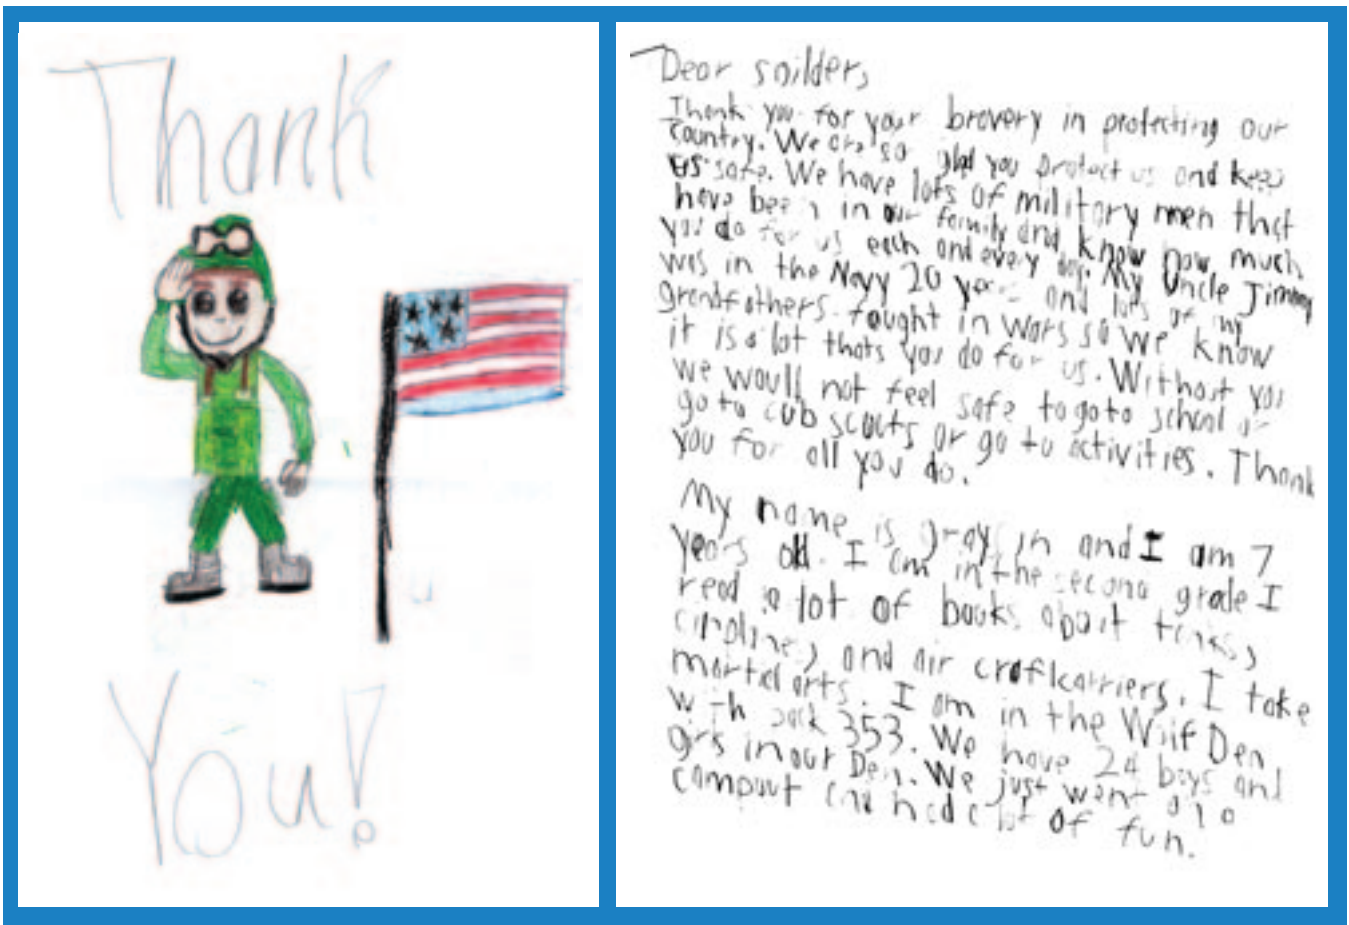 Thank
You!
Dear soilder,
Thank you for your bravery in protecting our
country. We are so glad you protect us and keep
us safe. We have lots of military men that
have been in our family and know how much
you do for us each and every day. My Uncle Jimmy
was in the Navy 20 years and lots of my
grandfathers fought in wars so we know
it is a lot thats you do for us. Without you
we would not feel safe to go to school or
go to cub scouts or go to activities. Thank
you for all you do.
My name is grayson and I am 7
years old. I am in the second grade I
read a lot of books about tanks,
airplines, and air craftcarriers. I take
martial arts. I am in the Wolf Den
with pack 353. We have 24 boys and
girls in our Den. We just went on a
campout and had a lot of fun.